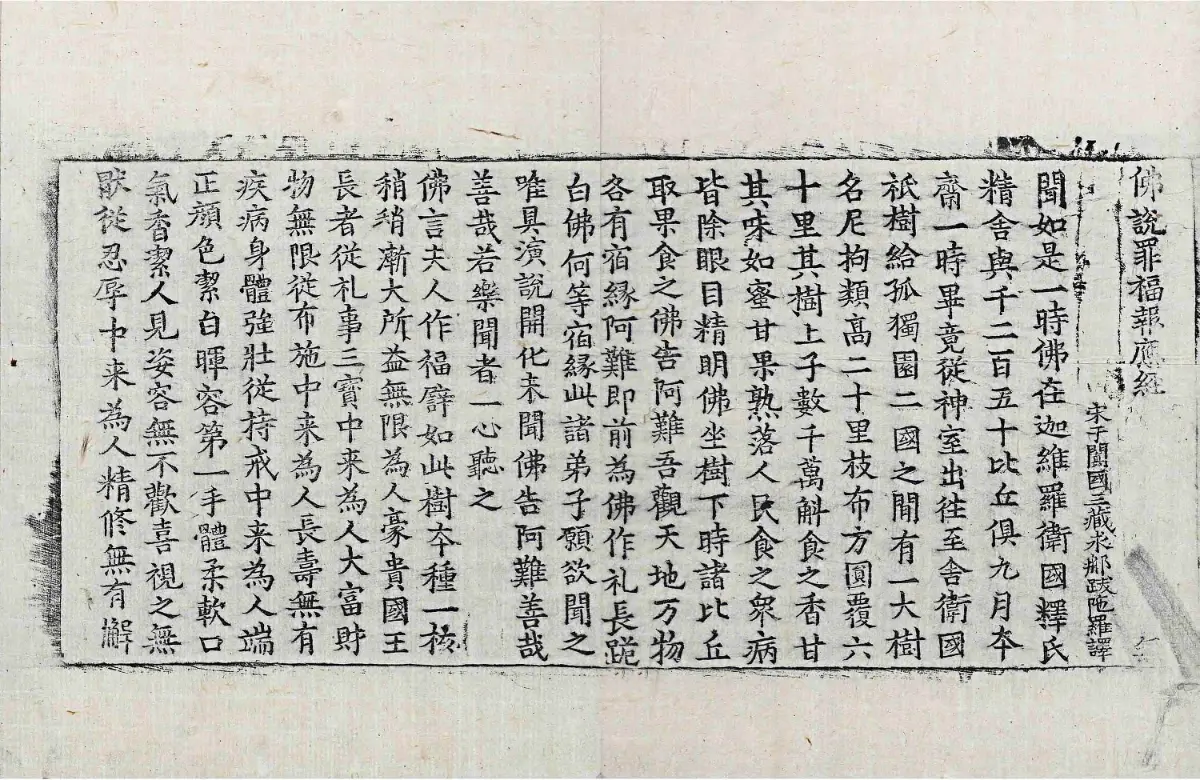 佛說罪福報應經
宋于闐國三藏求那跋陁羅譯
聞如是一時佛在迦維羅衛國釋氏
精舍與千二百五十比丘俱九月夲
齋一時畢竟從神室出往至舍衛國
祇樹給孤獨園二國之間有一大樹
名尼拘類高二十里枝布方圓覆六
十里其樹上子數千萬斛食之香甘
其味如蜜甘果熟落人民食之衆病
皆除眼目精明佛坐樹下時諸比丘
取果食之佛告阿難吾觀天地万物
各有宿緣阿難即前為佛作礼長跪
白佛何等宿緣此諸弟子願欲聞之
唯具演說開化未聞佛告阿難善哉
善哉若樂聞者一心聽之
佛言夫人作福譬如此樹夲種一核
稍稍漸大所益無限為人豪貴國王
長者從礼事三寶中来為人大富財
物無限從布施中来為人長壽無有
疾病身體強壯從持戒中来為人端
正顔色潔白暉容第一手體柔軟口
氣香潔人見姿容無不歡喜視之無
猒從忍辱中来為人精修無有懈